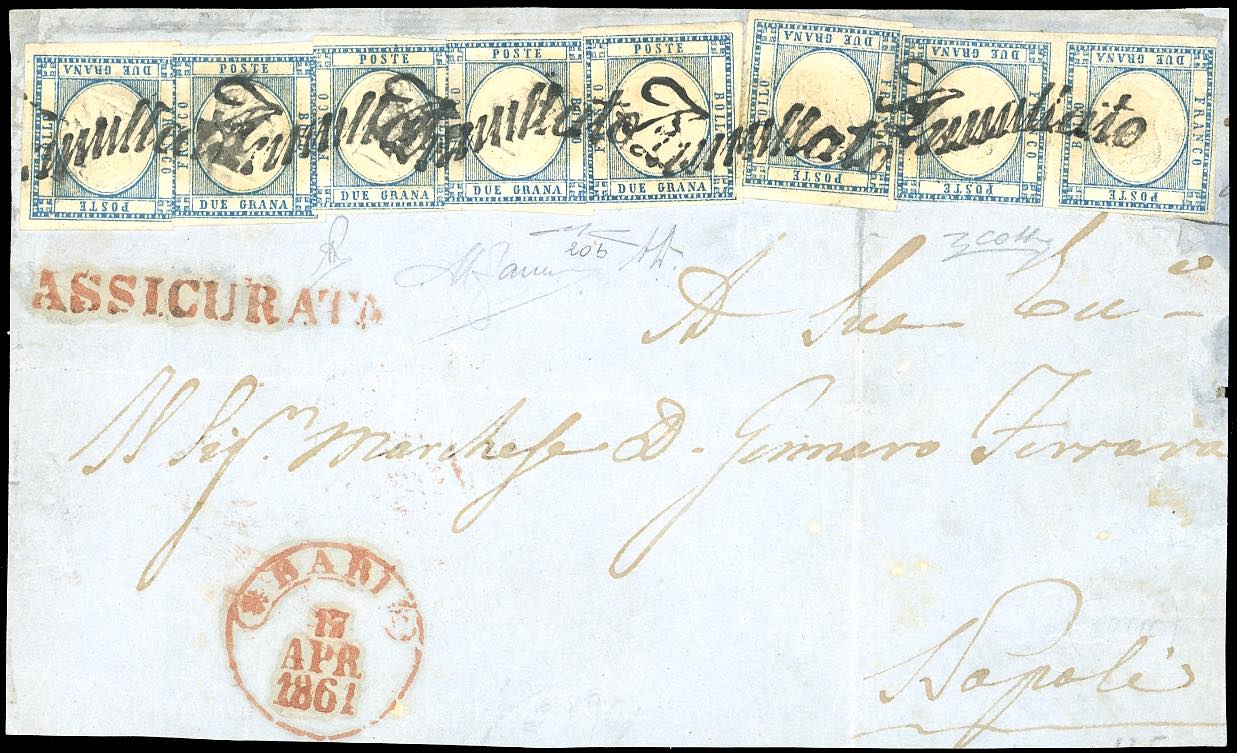 DUE GRANA POSTE
POSTE FRANCO BOLLO DUE GRANA
POSTE FRANCO BOLLO DUE GRANA
POSTE DUE GRANA
POSTE FRANCO BOLLO DUE GRANA
DUE GRANA FRANCO BOLLO POSTE
DUE GRANA FRANCO BOLLO POSTE
DUE GRANA FRANCO BOLLO POSTE
Annullato Annullato Annullato Annullato Annullato
20b
ASSICURATA
A Sua
Il Sigr Marchese D. Gennaro Ferrara
BARI
17
APR
1861
Napoli